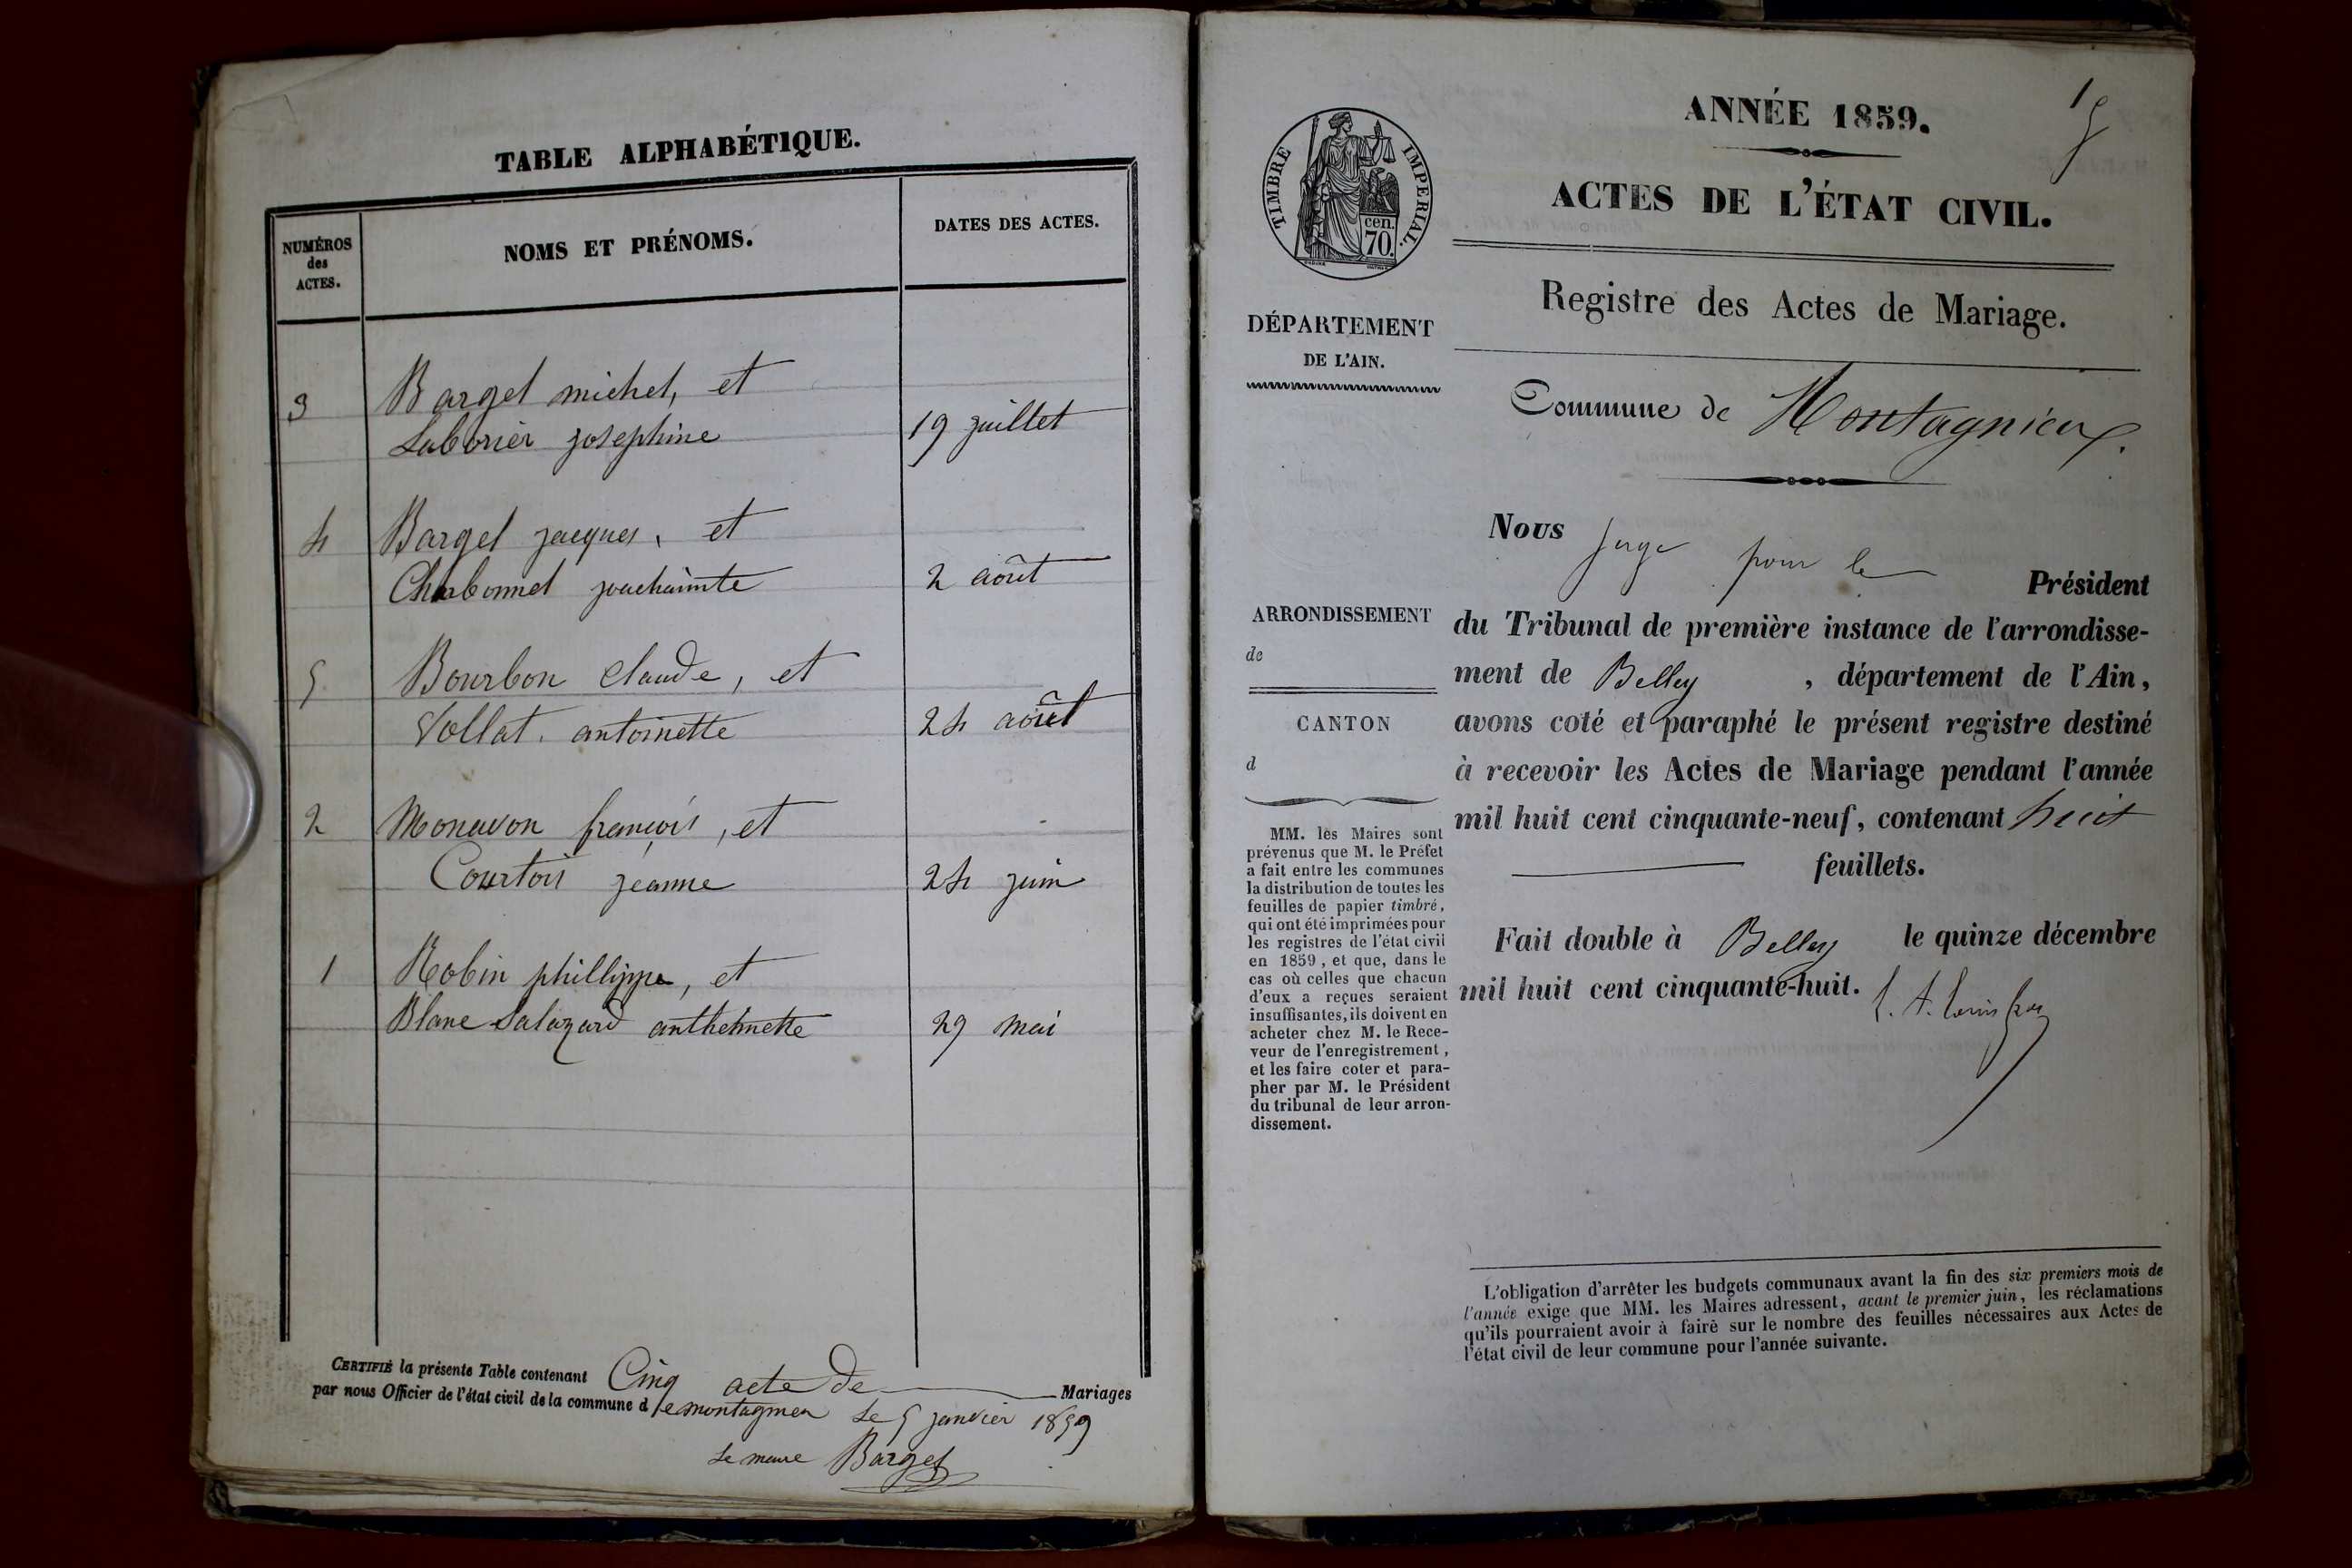 TABLE ALPHABÉTIQUE.
NUMÉROS
des
ACTES.
NOMS ET PRÉNOMS.
DATES DES ACTES.
3 Bargel michel, et
Laborier josephine 19 juillet
4 Bargel jacques, et
Charbonnel 2 août
5 Bourbon Claude, et
Vollat antoinette 24 août
2 Monavon françois, et
Courtois jeanne 24 juin
1 Robin phillippe, et
Blanc Salazard anthelmette 29 mai
CERTIFIÉ la présente Table contenant Cinq acte de Mariages
par nous Officier de l'état civil de la commune de montagneu Le 5 janvier 1859
Le maire Bargel
ANNÉE 1859.
1
ACTES DE L'ÉTAT CIVIL.
TIMBRE IMPERIAL.
cen.
70.
Registre des Actes de Mariage.
DÉPARTEMENT
DE L'AIN.
Commune de Montagnieux.
Nous juge pour le Président
du Tribunal de première instance de l'arrondisse-
ment de Belley, département de l'Ain,
avons coté et paraphé le présent registre destiné
à recevoir les Actes de Mariage pendant l'année
mil huit cent cinquante-neuf, contenant huit
feuillets.
Fait double à Belley le quinze décembre
mil huit cent cinquante-huit.
ARRONDISSEMENT
de
CANTON
d
MM. les Maires sont
prévenus que M. le Préfet
a fait entre les communes
la distribution de toutes les
feuilles de papier timbré,
qui ont été imprimées pour
les registres de l'état civil
en 1859, et que, dans le
cas où celles que chacun
d'eux a reçues seraient
insuffisantes, ils doivent en
acheter chez M. le Rece-
veur de l'enregistrement,
et les faire coter et para-
pher par M. le Président
du tribunal de leur arron-
dissement.
L'obligation d'arrêter les budgets communaux avant la fin des six premiers mois de
l'année exige que MM. les Maires adressent, avant le premier juin, les réclamations
qu'ils pourraient avoir à faire sur le nombre des feuilles nécessaires aux Actes de
l'état civil de leur commune pour l'année suivante.